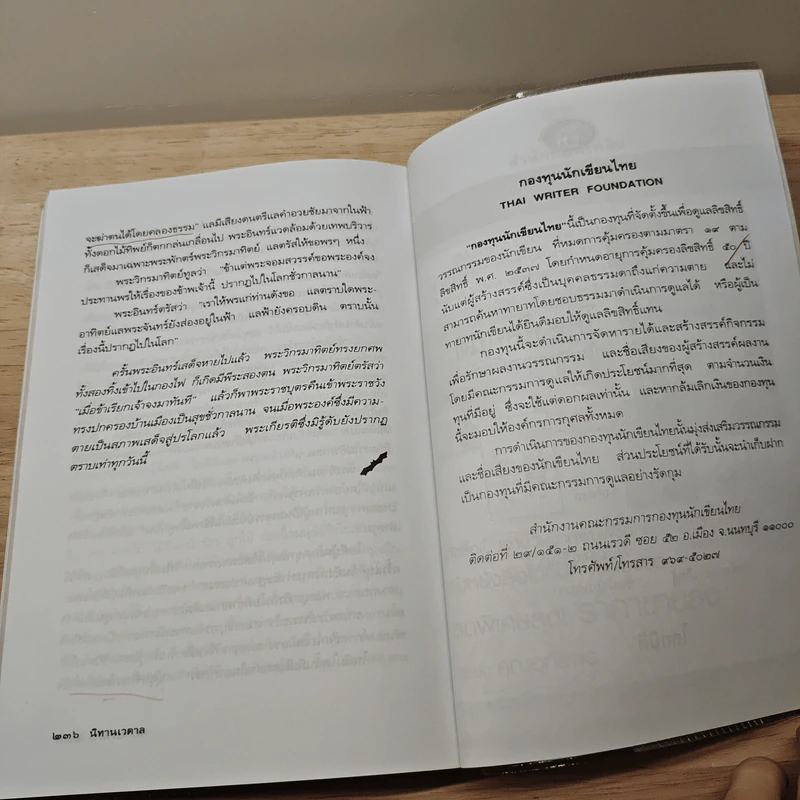 จะฆ่าตนได้โดยคลองธรรม" แลมีเสียงดนตรีแลคำอวยชัยมาจากในฟ้า
ทั้งดอกไม้ทิพย์ก็ตกกล่นเกลื่อนไป พระอินทร์แวดล้อมด้วยเทพบริวาร
ก็เสด็จมาเฉพาะพระพักตร์พระวิกรมาทิตย์ แลตรัสให้ขอพรๆ หนึ่ง
พระวิกรมาทิตย์ทูลว่า "ข้าแต่พระจอมสวรรค์ขอพระองค์จง
ประทานพรให้เรื่องของข้าพเจ้านี้ ปรากฏไปในโลกชั่วกาลนาน"
พระอินทร์ตรัสว่า "เราให้พรแก่ท่านดังขอ แลตราบใดพระ-
อาทิตย์แลพระจันทร์ยังส่องอยู่ในฟ้า แลฟ้ายังครอบดิน ตราบนั้น
เรื่องนี้ปรากฏไปในโลก"
ครั้นพระอินทร์เสด็จหายไปแล้ว พระวิกรมาทิตย์ทรงยกศพ
ทั้งสองทิ้งเข้าไปในกองไฟ ก็เกิดมีพีระสองตน พระวิกรมาทิตย์ตรัสว่า
"เมื่อข้าเรียกเจ้าจงมาทันที" แล้วก็พาพระราชบุตรคืนเข้าพระราชวัง
ทรงปกครองบ้านเมืองเป็นสุขชั่วกาลนาน จนเมื่อพระองค์ซึ่งมีความ-
ตายเป็นสภาพเสด็จสู่ปรโลกแล้ว พระเกียรติซึ่งมิรู้ดับยังปรากฏ
ตราบเท่าทุกวันนี้
๒๓๖ นิทานเวตาล
กองทุนนักเขียนไทย
THAI WRITER FOUNDATION
"กองทุนนักเขียนไทย"นี้เป็นกองทุนที่จัดตั้งขึ้นเพื่อดูแลลิขสิทธิ์
วรรณกรรมของนักเขียน ที่หมดการคุ้มครองตามมาตรา ๑๙ ตาม
ลิขสิทธิ์ พ.ศ. ๒๕๓๗ โดยกำหนดอายุการคุ้มครองลิขสิทธิ์ ๕๐ ปี
นับแต่ผู้สร้างสรรค์ซึ่งเป็นบุคคลธรรมดาถึงแก่ความตาย และไม่
สามารถค้นหาทายาทโดยชอบธรรมมาดำเนินการดูแลได้ หรือผู้เป็น
ทายาทนักเขียนได้ยินดีมอบให้ดูแลลิขสิทธิ์แทน
กองทุนนี้จะดำเนินการจัดหารายได้และสร้างสรรค์กิจกรรม
เพื่อรักษาผลงานวรรณกรรม และชื่อเสียงของผู้สร้างสรรค์ผลงาน
โดยมีคณะกรรมการดูแลให้เกิดประโยชน์มากที่สุด ตามจำนวนเงิน
ทุนที่มีอยู่ ซึ่งจะใช้แต่ดอกผลเท่านั้น และหากล้มเลิกเงินของกองทุน
นี้จะมอบให้องค์กรการกุศลทั้งหมด
การดำเนินการของกองทุนนักเขียนไทยนั้นมุ่งส่งเสริมวรรณกรรม
และชื่อเสียงของนักเขียนไทย ส่วนประโยชน์ที่ได้รับนั้นจะนำเก็บฝาก
เป็นกองทุนที่มีคณะกรรมการดูแลอย่างรัดกุม
สำนักงานคณะกรรมการกองทุนนักเขียนไทย
ติดต่อที่ ๒๙/๑๕๑-๒ ถนนเรวดี ซอย ๕๒ อ.เมือง จ.นนทบุรี ๑๑๐๐๐
โทรศัพท์/โทรสาร ๙๖๙-๕๐๒๗